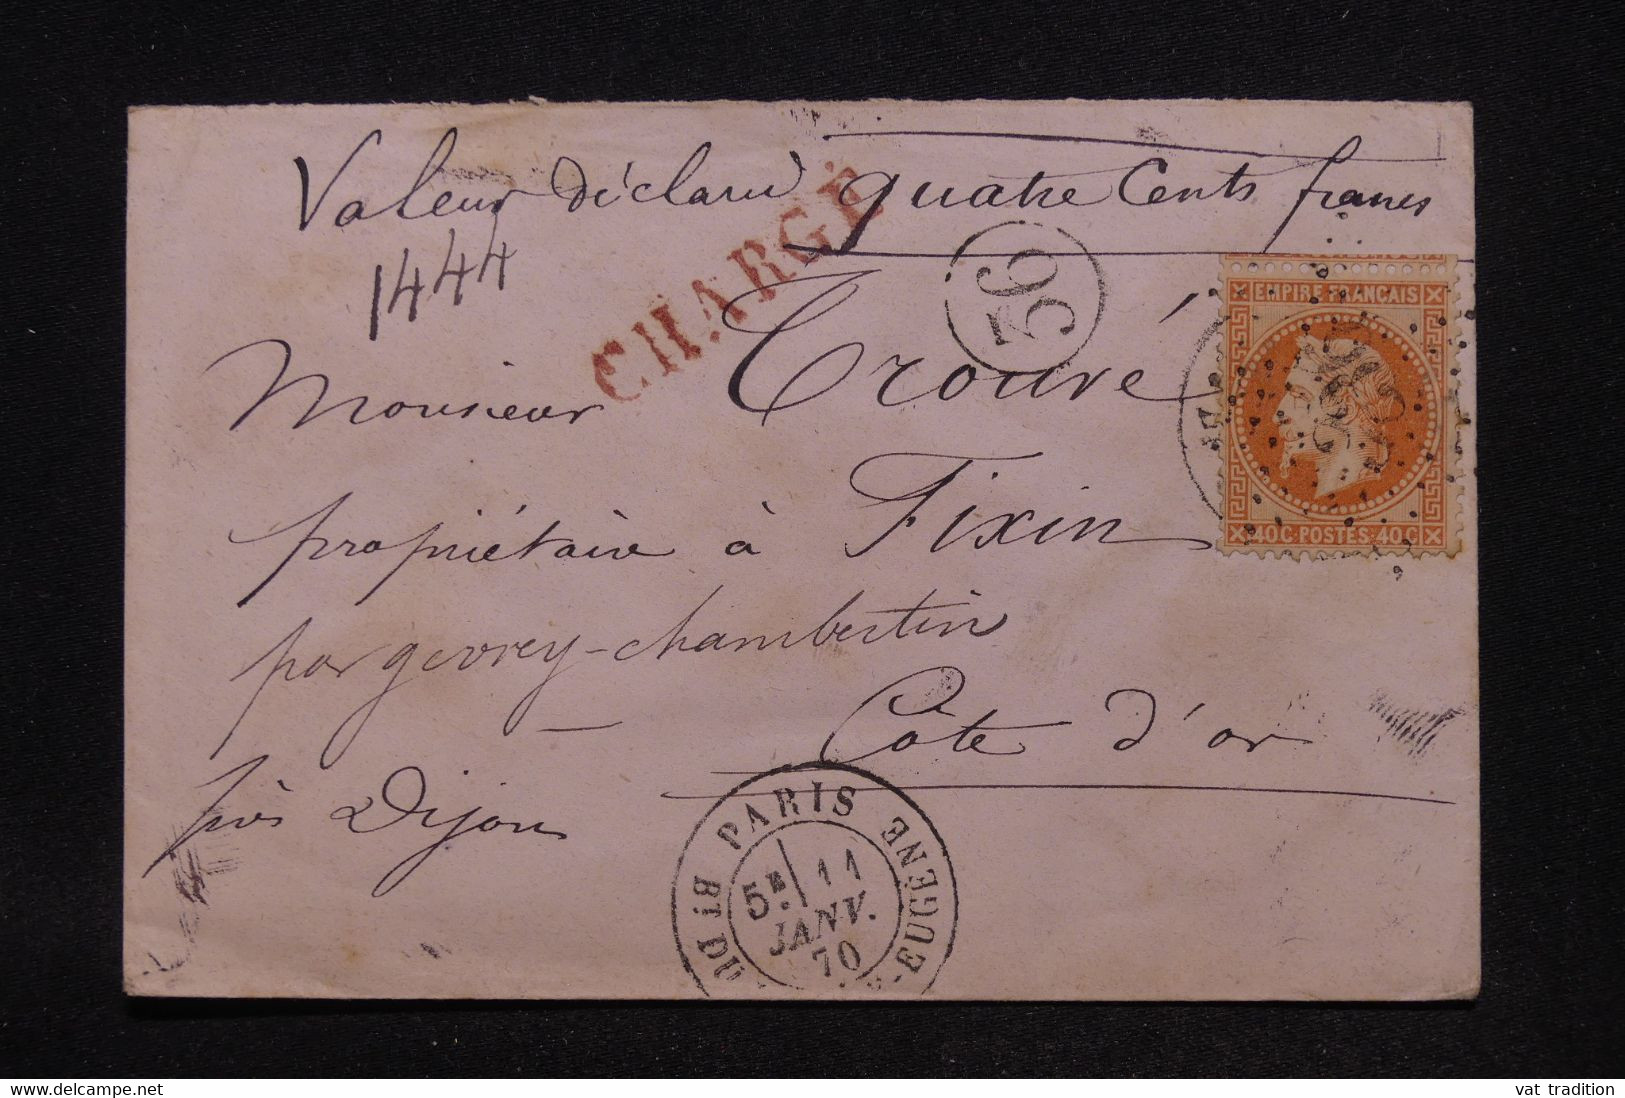 Valeur déclaré quatre Cents francs
1444
CHARGÉ
56
Monsieur Trouvé
EMPIRE FRANÇAIS
40 C. POSTES 40 C
propriétaire à Fixin
par gevrey-chambertin
Côte d'or
près Dijon
PARIS
BT DU
EUGENE
5E 11
JANV.
70
delcampe.net
vat tradition